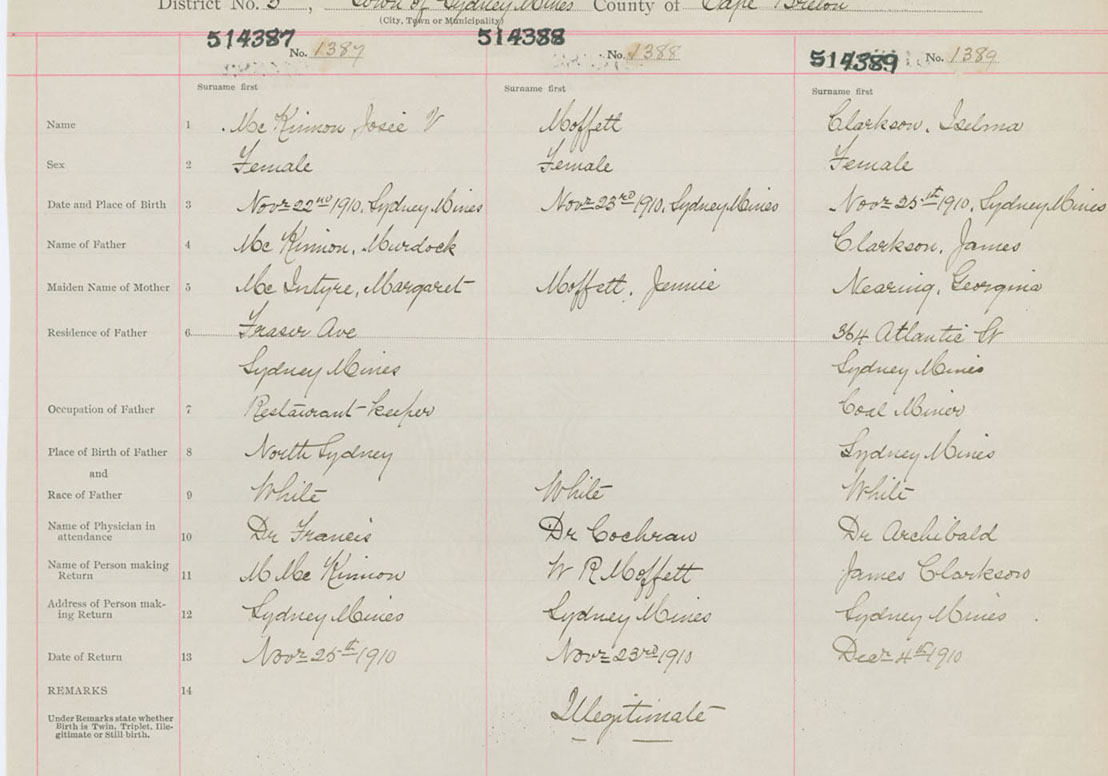 District No. 3, Town of Sydney Mines County of Cape Breton
(City, Town or Municipality)
514387 No. 1387 514388 No. 1388 514389 No. 1389
Surname first Surname first Surname first
Name 1 Mc Kinnon, Josie V Moffett Clarkson, Iselma
Sex 2 Female Female Female
Date and Place of Birth 3 Novr 22nd 1910, Sydney Mines Novr 23rd 1910, Sydney Mines Novr 25th 1910, Sydney Mines
Name of Father 4 Mc Kinnon, Murdock Clarkson, James
Maiden Name of Mother 5 Mc Intyre, Margaret Moffett, Jennie Nearing, Georgina
Residence of Father 6 Fraser Ave 364 Atlantic St
Sydney Mines Sydney Mines
Occupation of Father 7 Restaurant-keeper Coal Miner
Place of Birth of Father 8 North Sydney Sydney Mines
and
Race of Father 9 White White White
Name of Physician in attendance 10 Dr Francis Dr Cochran Dr Archibald
Name of Person making Return 11 M Mc Kinnon W R Moffett James Clarkson
Address of Person mak-ing Return 12 Sydney Mines Sydney Mines Sydney Mines
Date of Return 13 Novr 25th 1910 Novr 23rd 1910 Decr 4th 1910
REMARKS 14
Under Remarks state whether Birth is Twin, Triplet, Ille-gitimate or Still birth. Illegitimate